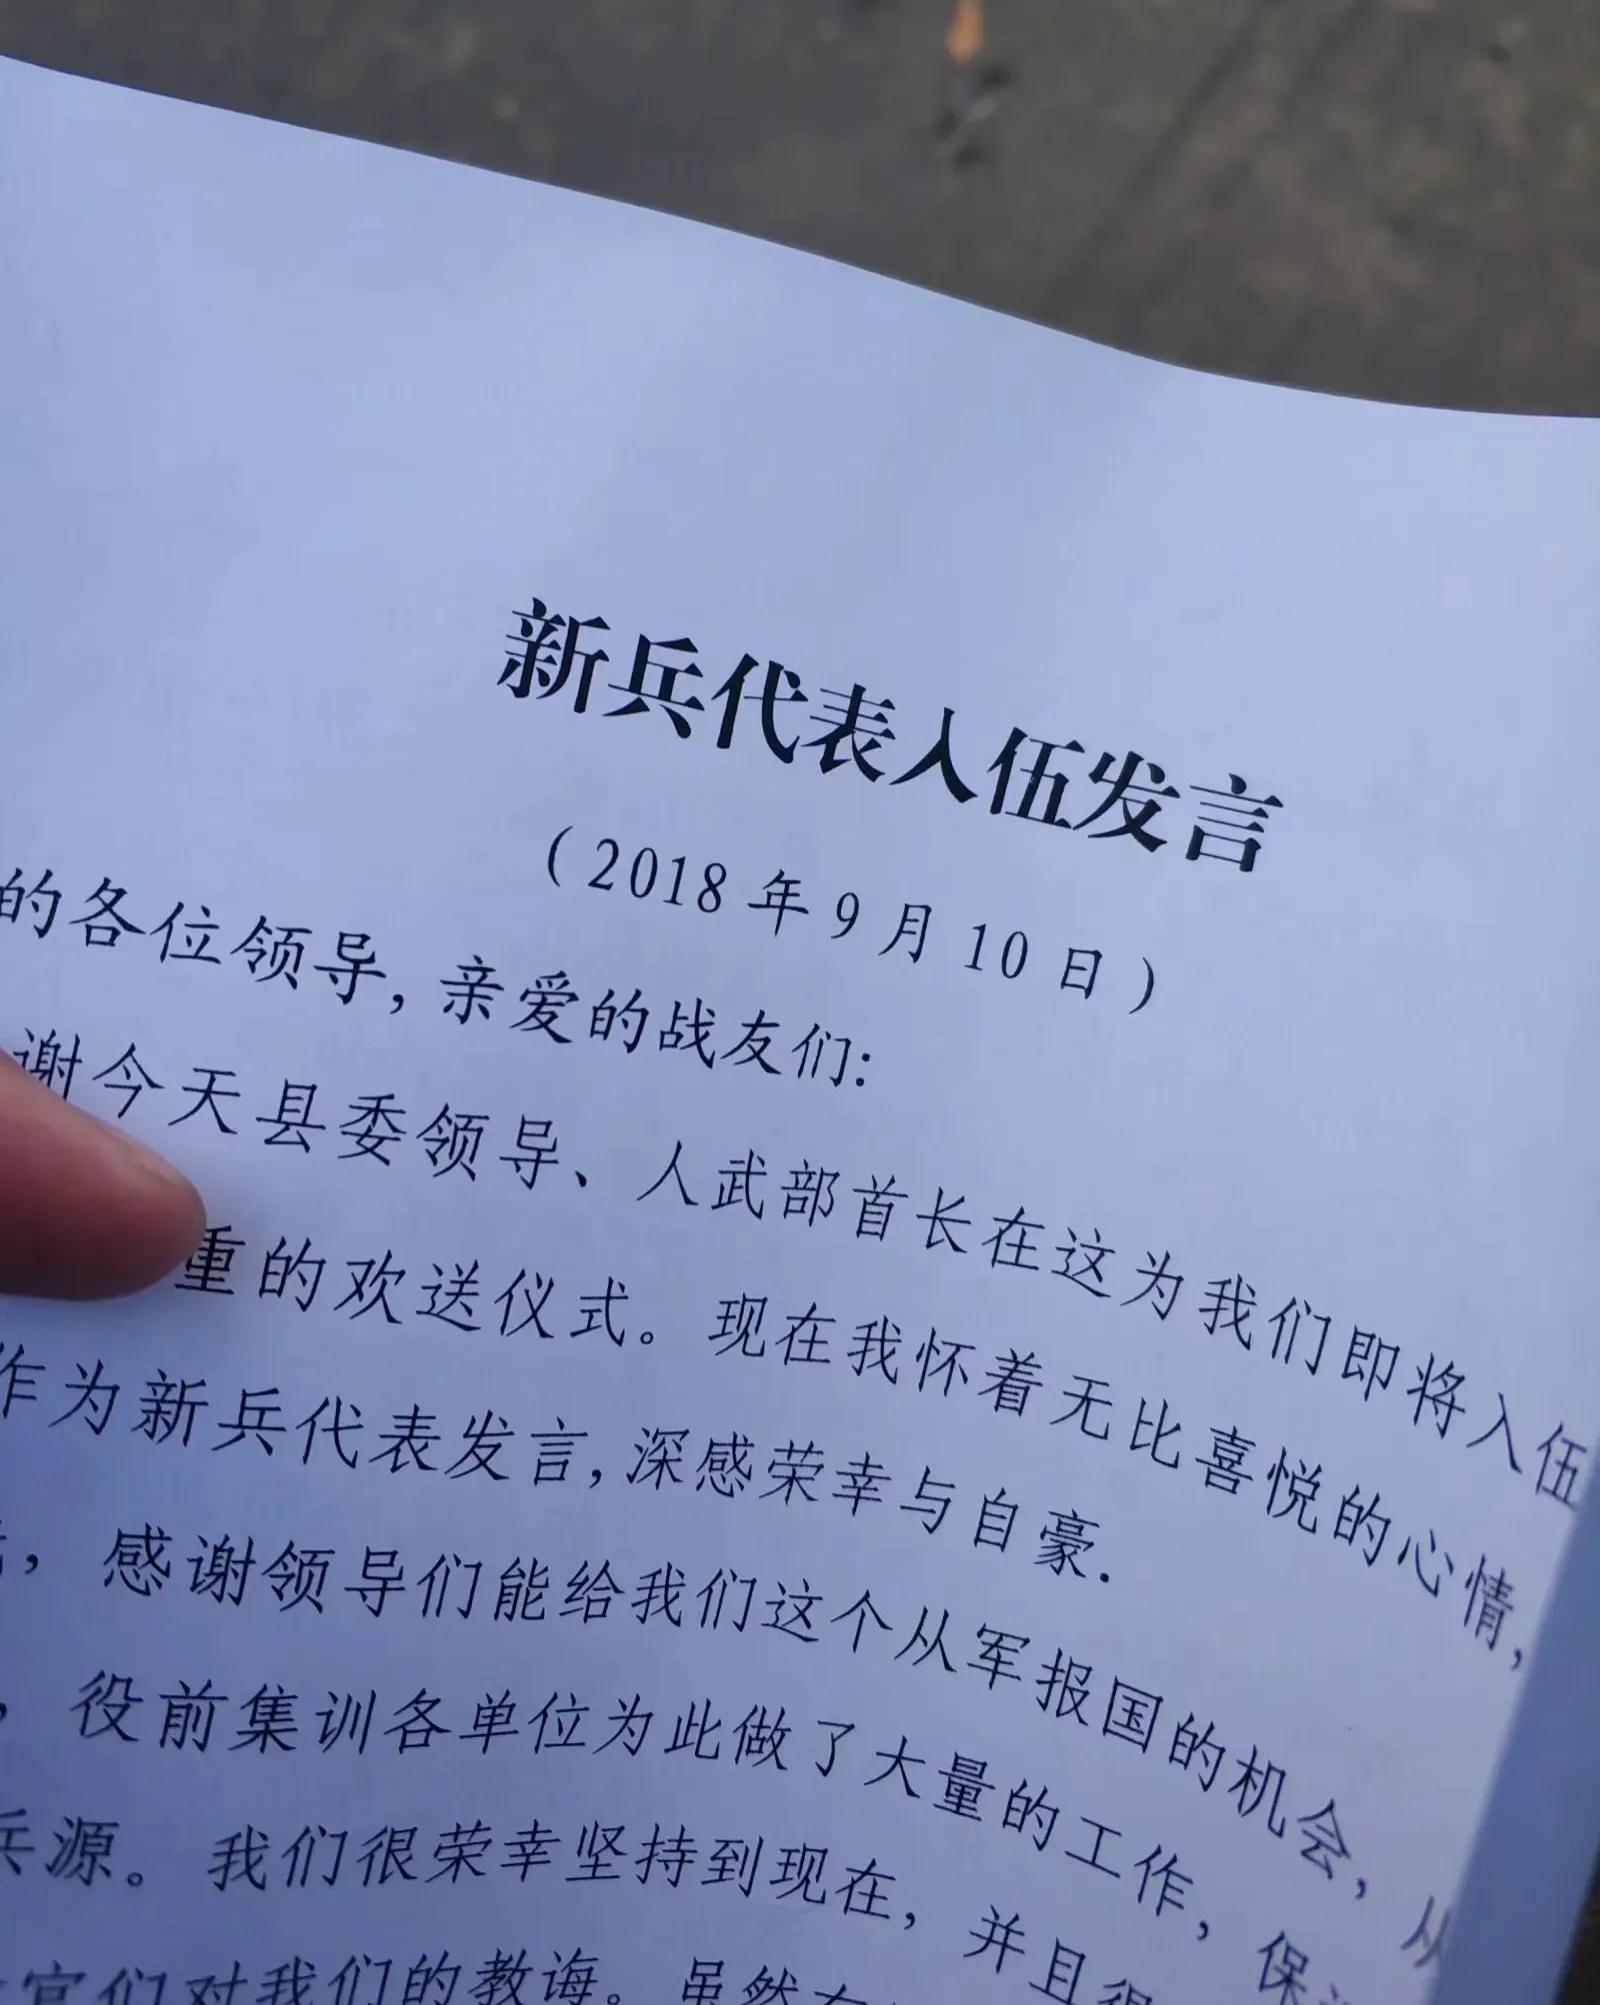 新兵代表入伍发言
（2018年9月10日）
的各位领导，亲爱的战友们：
谢今天县委领导、人武部首长在这为我们即将入伍
重的欢送仪式。现在我怀着无比喜悦的心情，
作为新兵代表发言，深感荣幸与自豪.
，感谢领导们能给我们这个从军报国的机会，从
，役前集训各单位为此做了大量的工作，保
兵源。我们很荣幸坚持到现在，并且很
官们对我们的教诲。虽然在